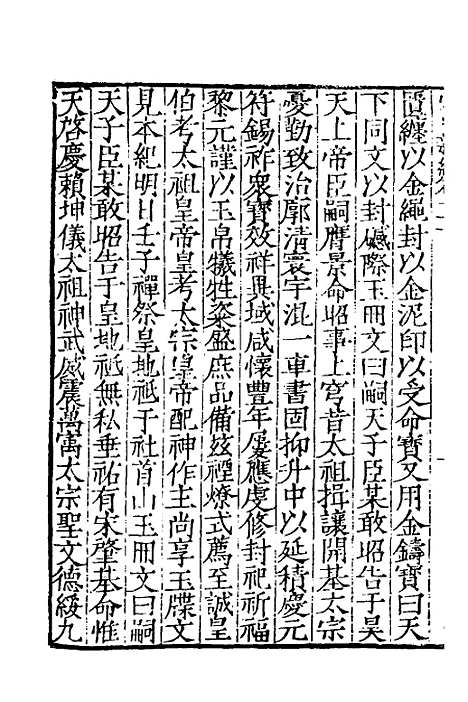 匱纏以金繩封以金泥印以受命寶又用金鑄寶曰天
下同文以封㽅際玉冊文曰嗣天子臣某敢昭告于昊
天上帝臣嗣膺景命昭事上穹昔太祖揖讓開基太宗
憂勤致治廓清寰宇混一車書固抑升中以延積慶元
符錫祚衆寶效祥異域咸懷豐年屢應虔修封祀祈福
黎元謹以玉帛犧牲粢盛庶品備玆禋燎式薦至誠皇
伯考太祖皇帝皇考太宗皇帝配神作主尚享玉牒文
見本紀明日壬子禪祭皇地祗于社首山玉冊文曰嗣
天子臣某敢昭告于皇地祗無私垂祐有宋肇基命惟
天啓慶賴坤儀太祖神武威震萬㝢太宗聖文德綏九